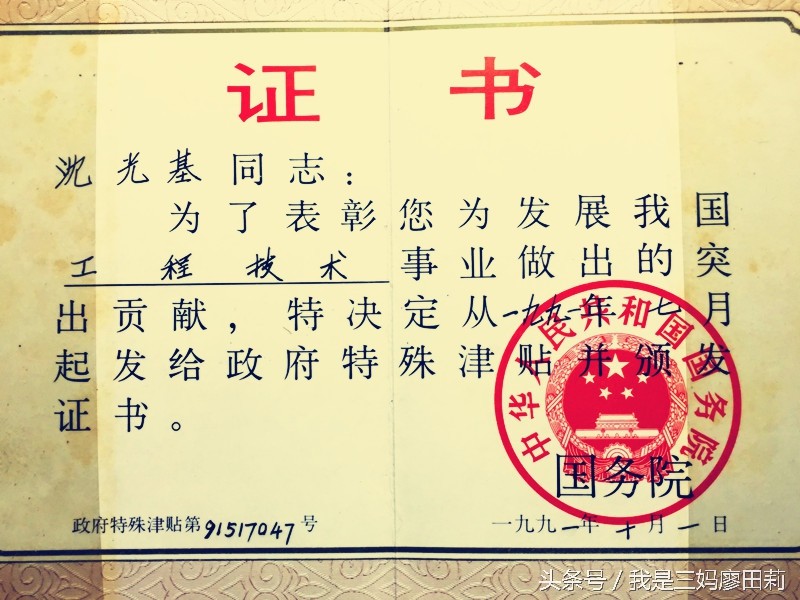 证书
沈光基同志：
为了表彰您为发展我国
工程技术事业做出的突
出贡献，特决定从一九九一年七月
起发给政府特殊津贴并颁发
证书。
中华人民共和国国务院
国务院
政府特殊津贴第91517047号
一九九一年十月一日
头条号／我是三妈廖田莉